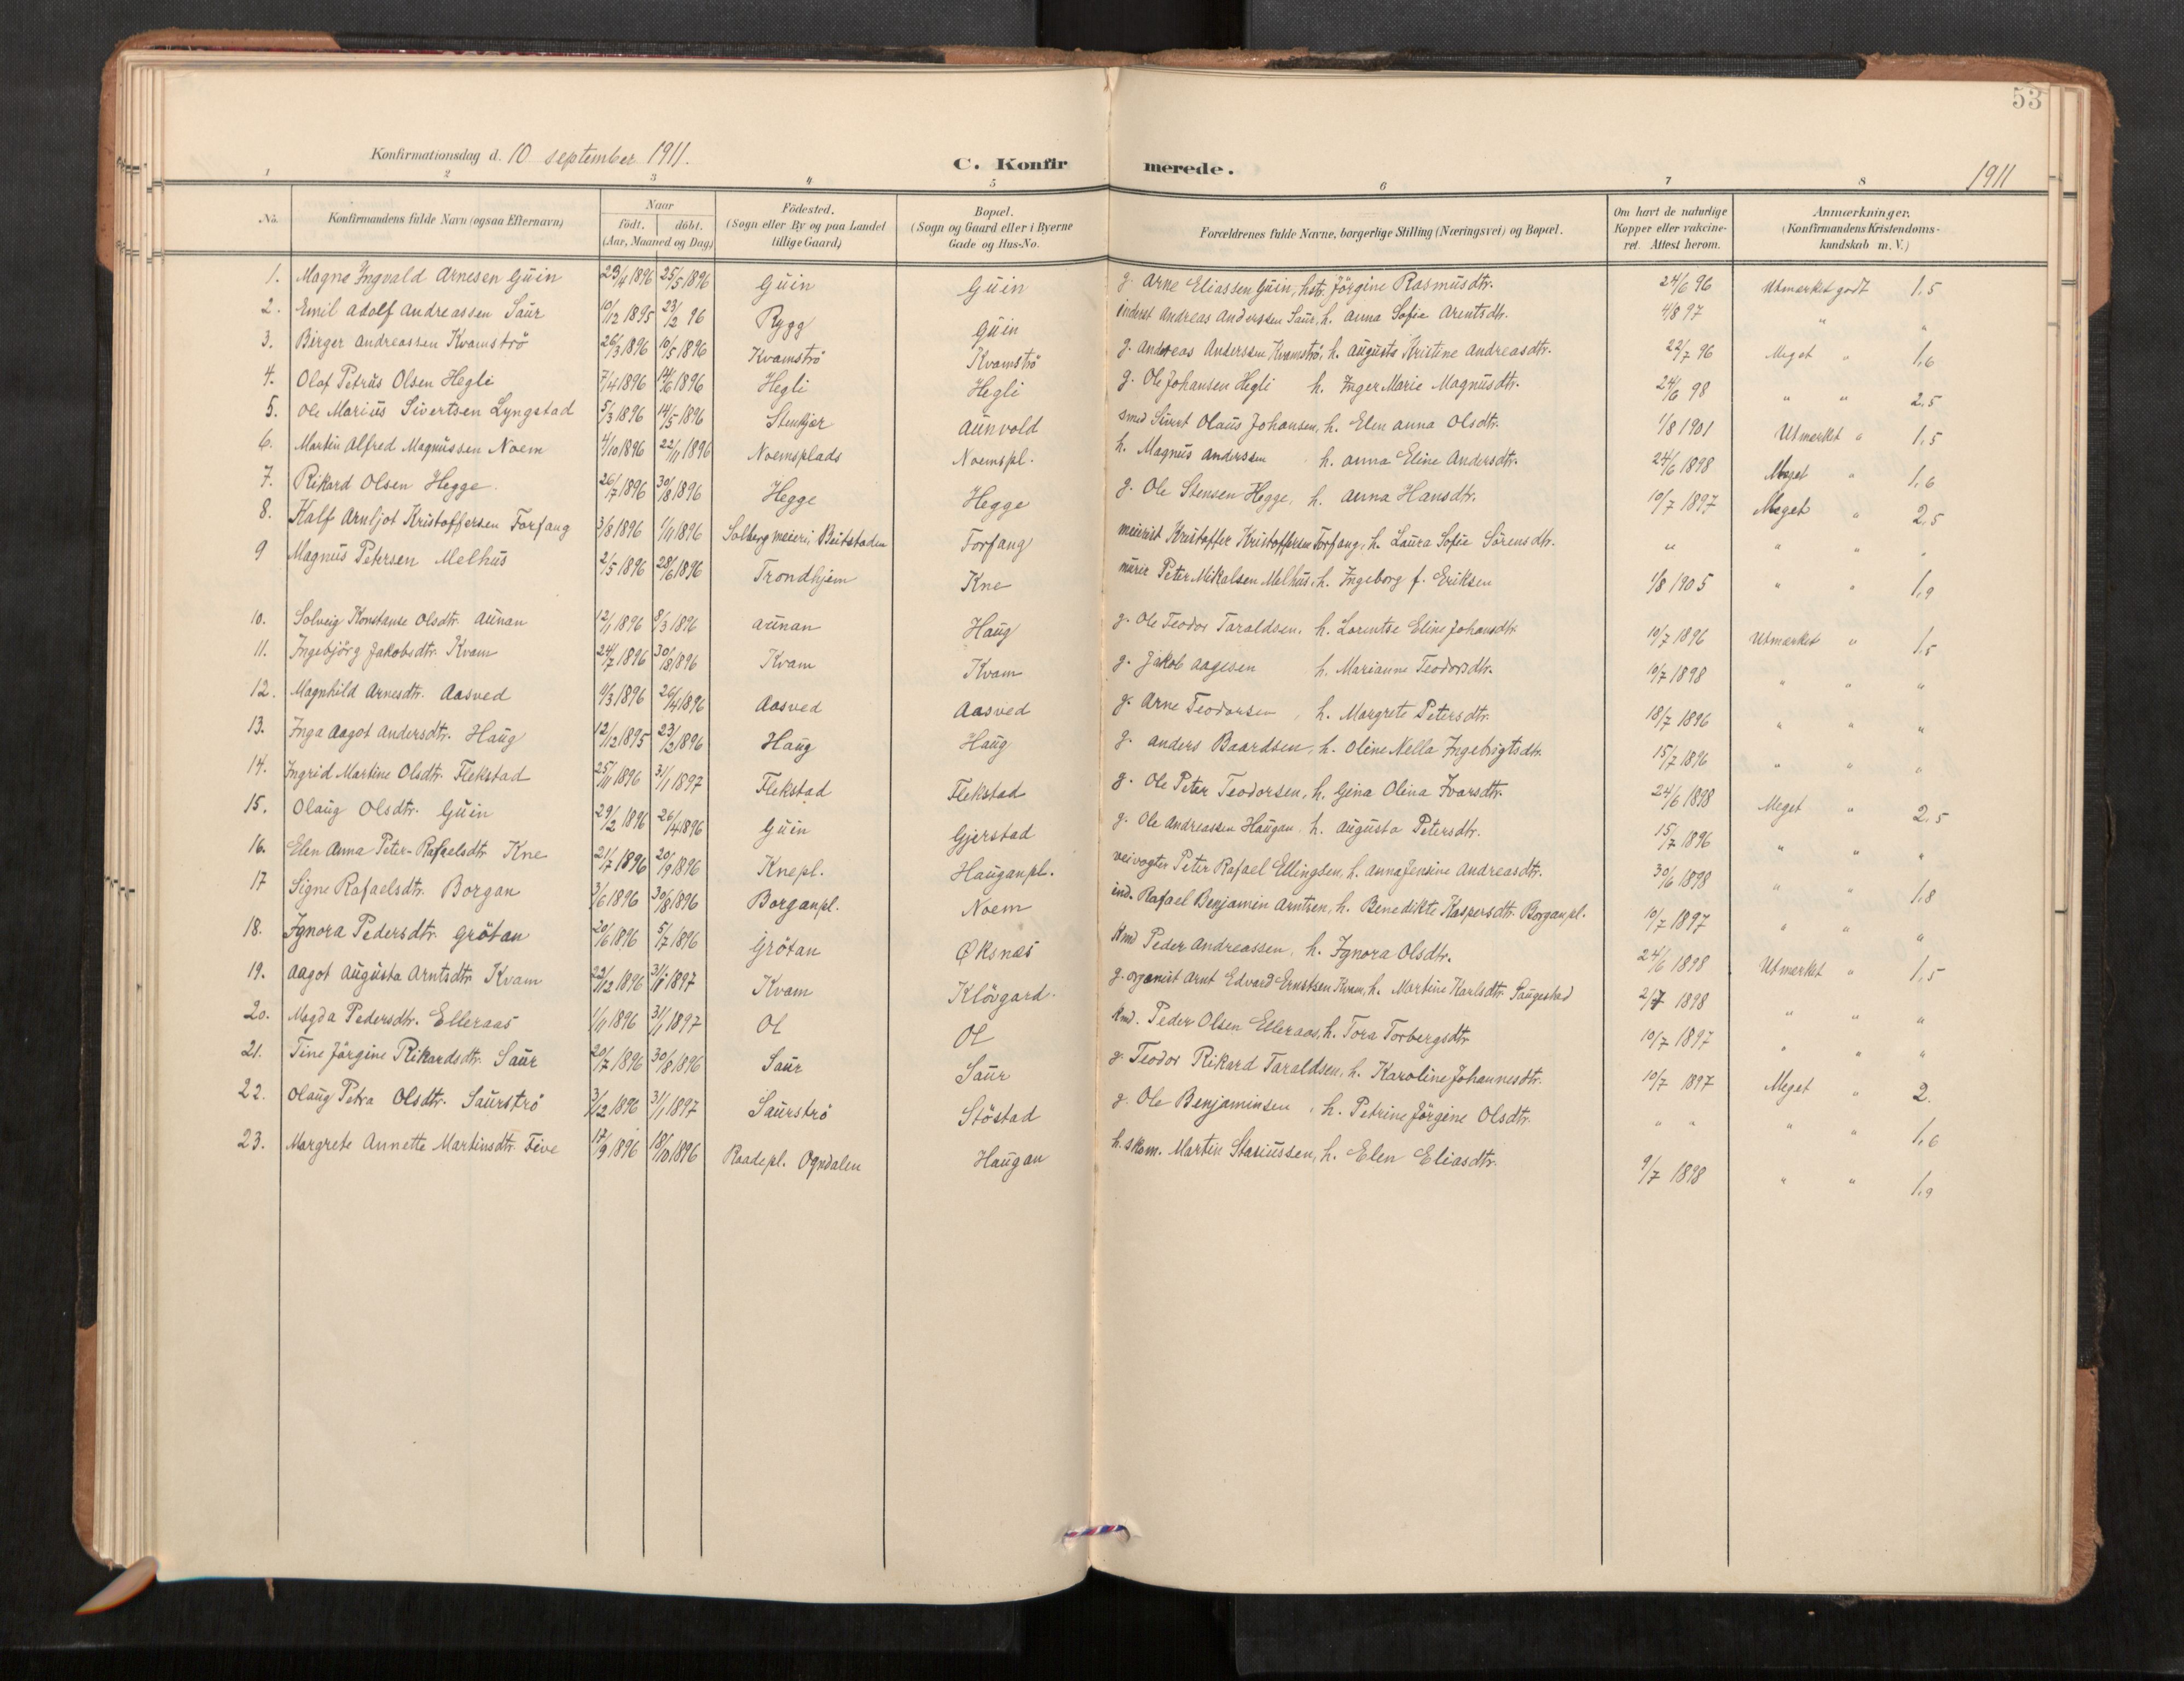 53
Konfirmationsdag d. 10 september 1911.
C. Konfirmerede.
1911
1 2 3 4 5 6 7 8
No. Konfirmandens fulde Navn (ogsaa Efternavn) Naar födt. döbt. (Aar, Maaned og Dag) Födested. (Sogn eller By og paa Landet tillige Gaard) Bopæl. (Sogn og Gaard eller i Byerne Gade og Hus-No. Forældrenes fulde Navne, borgerlige Stilling (Næringsvei) og Bopæl. Om havt de naturlige Kopper eller vakcineret. Attest herom. Anmærkninger. (Konfirmandens Kristendomskundskab m. V.)
1. Magne Ingvald Arnesen Guin 29/4 1896 25/5 1896 Guin Guin g. Arne Eliassen Guin, hstr. Jörgine Rasmusdtr. 24/6 96 Utmerket godt 1,5
2. Emil Adolf Andreassen Saur 10/12 1895 23/2 96 Rygg Guin inderst Andreas Anderssen Saur, h. Anna Sofie Arentsdtr. 4/8 97 " "
3. Birger Andreassen Kvamströ 26/3 1896 10/5 1896 Kvamströ Kvamströ g. Andreas Anderssen Kvamströ, h. Augusta Kristine Andreasdtr. 22/7 96 Meget " 1,6
4. Olaf Petrus Olsen Hegli 7/4 1896 14/6 1896 Hegli Hegli g. Ole Johansen Hegli h. Inger Marie Magnusdtr. 24/6 98 " " 2,5
5. Ole Marius Sivertsen Lyngstad 5/3 1896 14/5 1896 Stenkjær Aunvold smed Sivert Olaus Johansen, h. Elen Anna Olsdtr. 1/8 1901 Utmerket " 1,5
6. Martin Alfred Magnussen Noem 4/10 1896 22/11 1896 Noemsplads Noemspl. h. Magnus Anderssen h. Anna Eline Andersdtr. 24/6 1898 Meget " 1,6
7. Rikard Olsen Hegge. 26/7 1896 30/8 1896 Hegge Hegge g. Ole Stensen Hegge, h. Anna Hansdtr. 10/7 1897 Meget " 2,5
8. Kalf Arnljot Kristoffersen Forfang 3/8 1896 1/11 1896 Solberg meieri, Beitstaden Forfang meierist Kristoffer Kristoffersen Forfang, h. Laura Sofie Sörensdtr. " " " "
9 Magnus Petersen Melhus 2/5 1896 28/6 1896 Trondhjem Kne murer Peter Mikalsen Melhus, h. Ingeborg f. Eriksen 1/8 1905 " " 1,9
10. Solveig Konstanse Olsdtr. Aunan 12/1 1896 8/3 1896 Aunan Haug g. Ole Teodor Taraldsen, h. Lorentse Eline Johansdtr. 10/7 1896 Utmærket " 1,5
11. Ingebjörg Jakobsdtr. Kvam 24/7 1896 30/8 1896 Kvam Kvam g. Jakob Aagesen h. Marianne Teodorsdtr. 10/7 1898 " " "
12. Magnhild Arnesdtr. Aasved 9/3 1896 26/4 1896 Aasved Aasved g. Arne Teodorsen, h. Margrete Petersdtr. 18/7 1896 " " "
13. Inga Aagot Andersdtr. Haug 12/12 1895 23/2 1896 Haug Haug g. Anders Baardsen, h. Oline Nella Ingebrigtsdtr. 15/7 1896 " " "
14. Ingrid Martine Olsdtr. Flekstad 25/11 1896 31/1 1897 Flekstad Flekstad g. Ole Peter Teodorsen, h. Gina Olina Ivarsdtr. 24/6 1898 Meget " 2,5
15. Olaug Olsdtr. Guin 29/2 1896 26/4 1896 Guin Gjerstad g. Ole Andreassen Haugan, h. Augusta Petersdtr. 15/7 1896 " " "
16. Elen Anna Peter-Rafaelsdtr Kne 21/7 1896 20/9 1896 Knepl. Hauganpl. veivogter Peter Rafael Ellingsen, h. Anna Jensine Andreasdtr. 30/6 1898 " " 1,8
17 Signe Rafaelsdtr. Borgan 3/6 1896 30/8 1896 Borganpl. Noem ind. Rafael Benjamin Arntsen, h. Benedikte Kaspersdtr. Borganpl. 10/7 1897 " " "
18. Ignora Pedersdtr. Grötan 20/6 1896 5/7 1896 Grötan Øksnæs Kmd Peder Andreassen, h. Ignora Olsdtr. 24/6 1898 Utmærket " 1,5
19. Aagot Augusta Arntsdtr Kvam 22/12 1896 31/1 1897 Kvam Klövgard. g. organist Arnt Edvard Ernstsen Kvam, h. Martine Karlsdtr. Saugestad 2/7 1898 " " "
20. Magda Pedersdtr. Elleraas 1/11 1896 31/1 1897 Ol Ol Kmd. Peder Olsen Elleraas, h. Tora Torbergsdtr 10/7 1897 " " "
21. Tine Jörgine Rikardsdtr. Saur 20/7 1896 30/8 1896 Saur Saur g. Teodor Rikard Taraldsen, h. Karoline Johannesdtr. 10/7 1897 Meget " 2.
22. Olaug Petra Olsdtr. Saurströ 3/12 1896 31/1 1897 Saurströ Stöstad g. Ole Benjaminsen, h. Petrine Jörgine Olsdtr. " " " " 1,6
23. Margrete Annette Martinsdtr. Five 17/9 1896 18/10 1896 Raadepl. Ogndalen Haugan h. skom. Martin Stasiussen, h. Elen Eliasdtr. 9/7 1898 " " 1,9